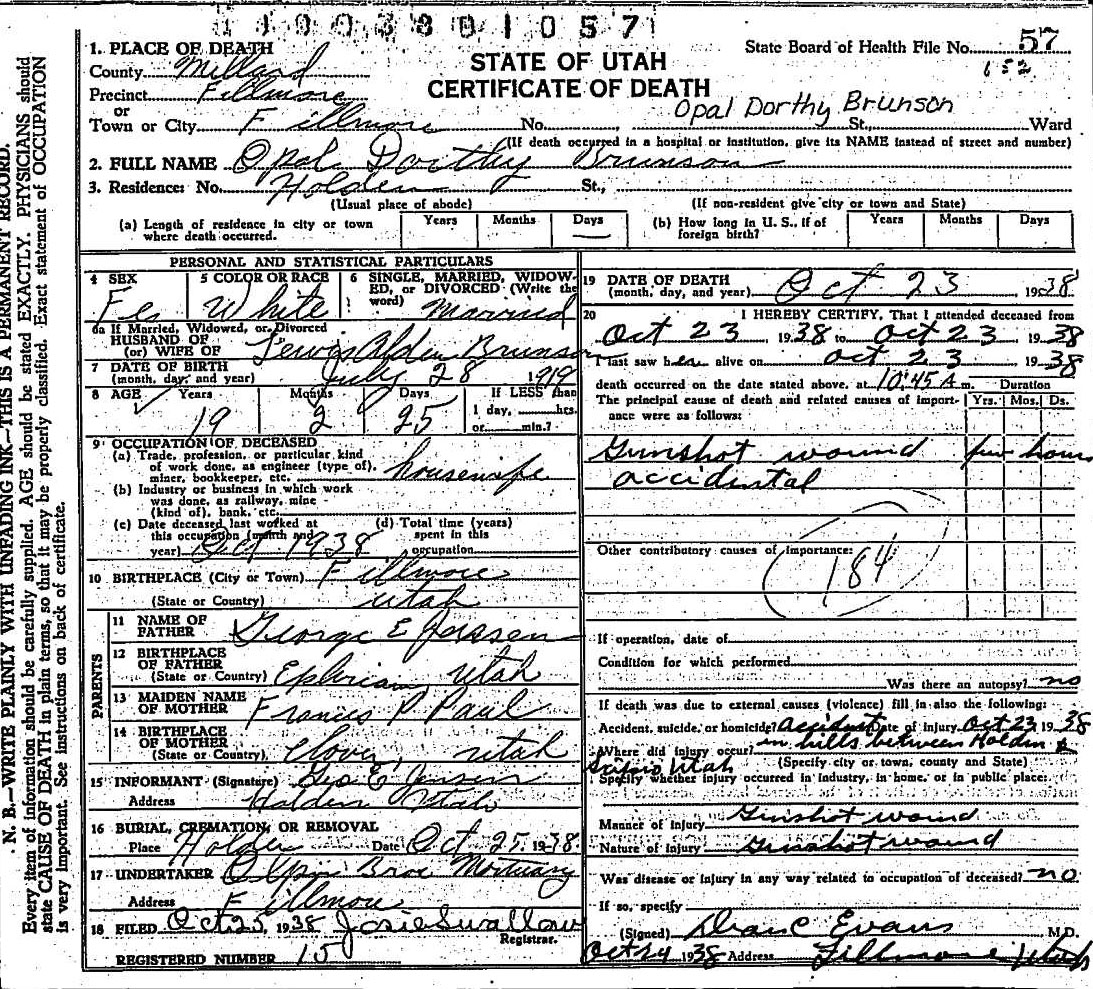 1903801057
1. PLACE OF DEATH
County Millard
Precinct Fillmore
or
Town or City Fillmore No. St., Ward
STATE OF UTAH
CERTIFICATE OF DEATH
State Board of Health File No. 57
652
Opal Dorthy Brunson
(If death occurred in a hospital or institution, give its NAME instead of street and number)
2. FULL NAME Opal Dorthy Brunson
3. Residence: No. Holden St.,
(Usual place of abode) (If non-resident give city or town and State)
(a) Length of residence in city or town where death occurred. Years Months Days —
(b) How long in U. S., if of foreign birth? Years Months Days
PERSONAL AND STATISTICAL PARTICULARS
4 SEX Fe
5 COLOR OR RACE White
6 SINGLE, MARRIED, WIDOWED, or DIVORCED (Write the word) Married
6a If Married, Widowed, or Divorced
HUSBAND OF
(or) WIFE OF Lewis Alden Brunson
7 DATE OF BIRTH
(month, day, and year) July 28 1919
8 AGE Years 19 Months 2 Days 25 If LESS than 1 day, hrs. or min.?
9 OCCUPATION OF DECEASED
(a) Trade, profession, or particular kind
of work done, as engineer (type of),
miner, bookkeeper, etc. housewife
(b) Industry or business in which work
was done, as railway, mine
(kind of), bank, etc.
(c) Date deceased last worked at
this occupation (month and
year) Oct 1938
(d) Total time (years)
spent in this
occupation
10 BIRTHPLACE (City or Town) Fillmore
(State or Country) Utah
PARENTS
11 NAME OF
FATHER George E Jensen
12 BIRTHPLACE
OF FATHER
(State or Country) Ephriam, Utah
13 MAIDEN NAME
OF MOTHER Frances P Paul
14 BIRTHPLACE
OF MOTHER
(State or Country) Clover, Utah
15 INFORMANT (Signature) Geo E Jensen
Address Holden Utah
16 BURIAL, CREMATION, OR REMOVAL
Place Holden Date Oct 25, 1938
17 UNDERTAKER Olpin Bros Mortuary
Address Fillmore
18 FILED Oct 25, 1938 Josie Swallow
Registrar.
REGISTERED NUMBER 15
19 DATE OF DEATH
(month, day, and year) Oct 23 1938
20 I HEREBY CERTIFY, That I attended deceased from
Oct 23, 1938 to Oct 23, 1938
I last saw her alive on Oct 23 1938
death occurred on the date stated above, at 10:45 A m. Duration
The principal cause of death and related causes of importance were as follows: Yrs. Mos. Ds.
Gunshot wound few hours
accidental
Other contributory causes of importance:
184
If operation, date of
Condition for which performed
Was there an autopsy? no
If death was due to external causes (violence) fill in also the following:
Accident, suicide, or homicide? Accident Date of injury Oct 23 1938
Where did injury occur? in hills between Holden &
Scipio Utah (Specify city or town, county and State)
Specify whether injury occurred in industry, in home, or in public place:
Manner of injury Gunshot wound
Nature of injury Gunshot wound
Was disease or injury in any way related to occupation of deceased? no
If so, specify
(Signed) Dean C Evans M.D.
Oct 24 1938 Address Fillmore Utah
N. B.—WRITE PLAINLY WITH UNFADING INK—THIS IS A PERMANENT RECORD.
Every item of information should be carefully supplied. AGE should be stated EXACTLY. PHYSICIANS should
state CAUSE OF DEATH in plain terms, so that it may be properly classified. Exact statement of OCCUPATION
is very important. See instructions on back of certificate.